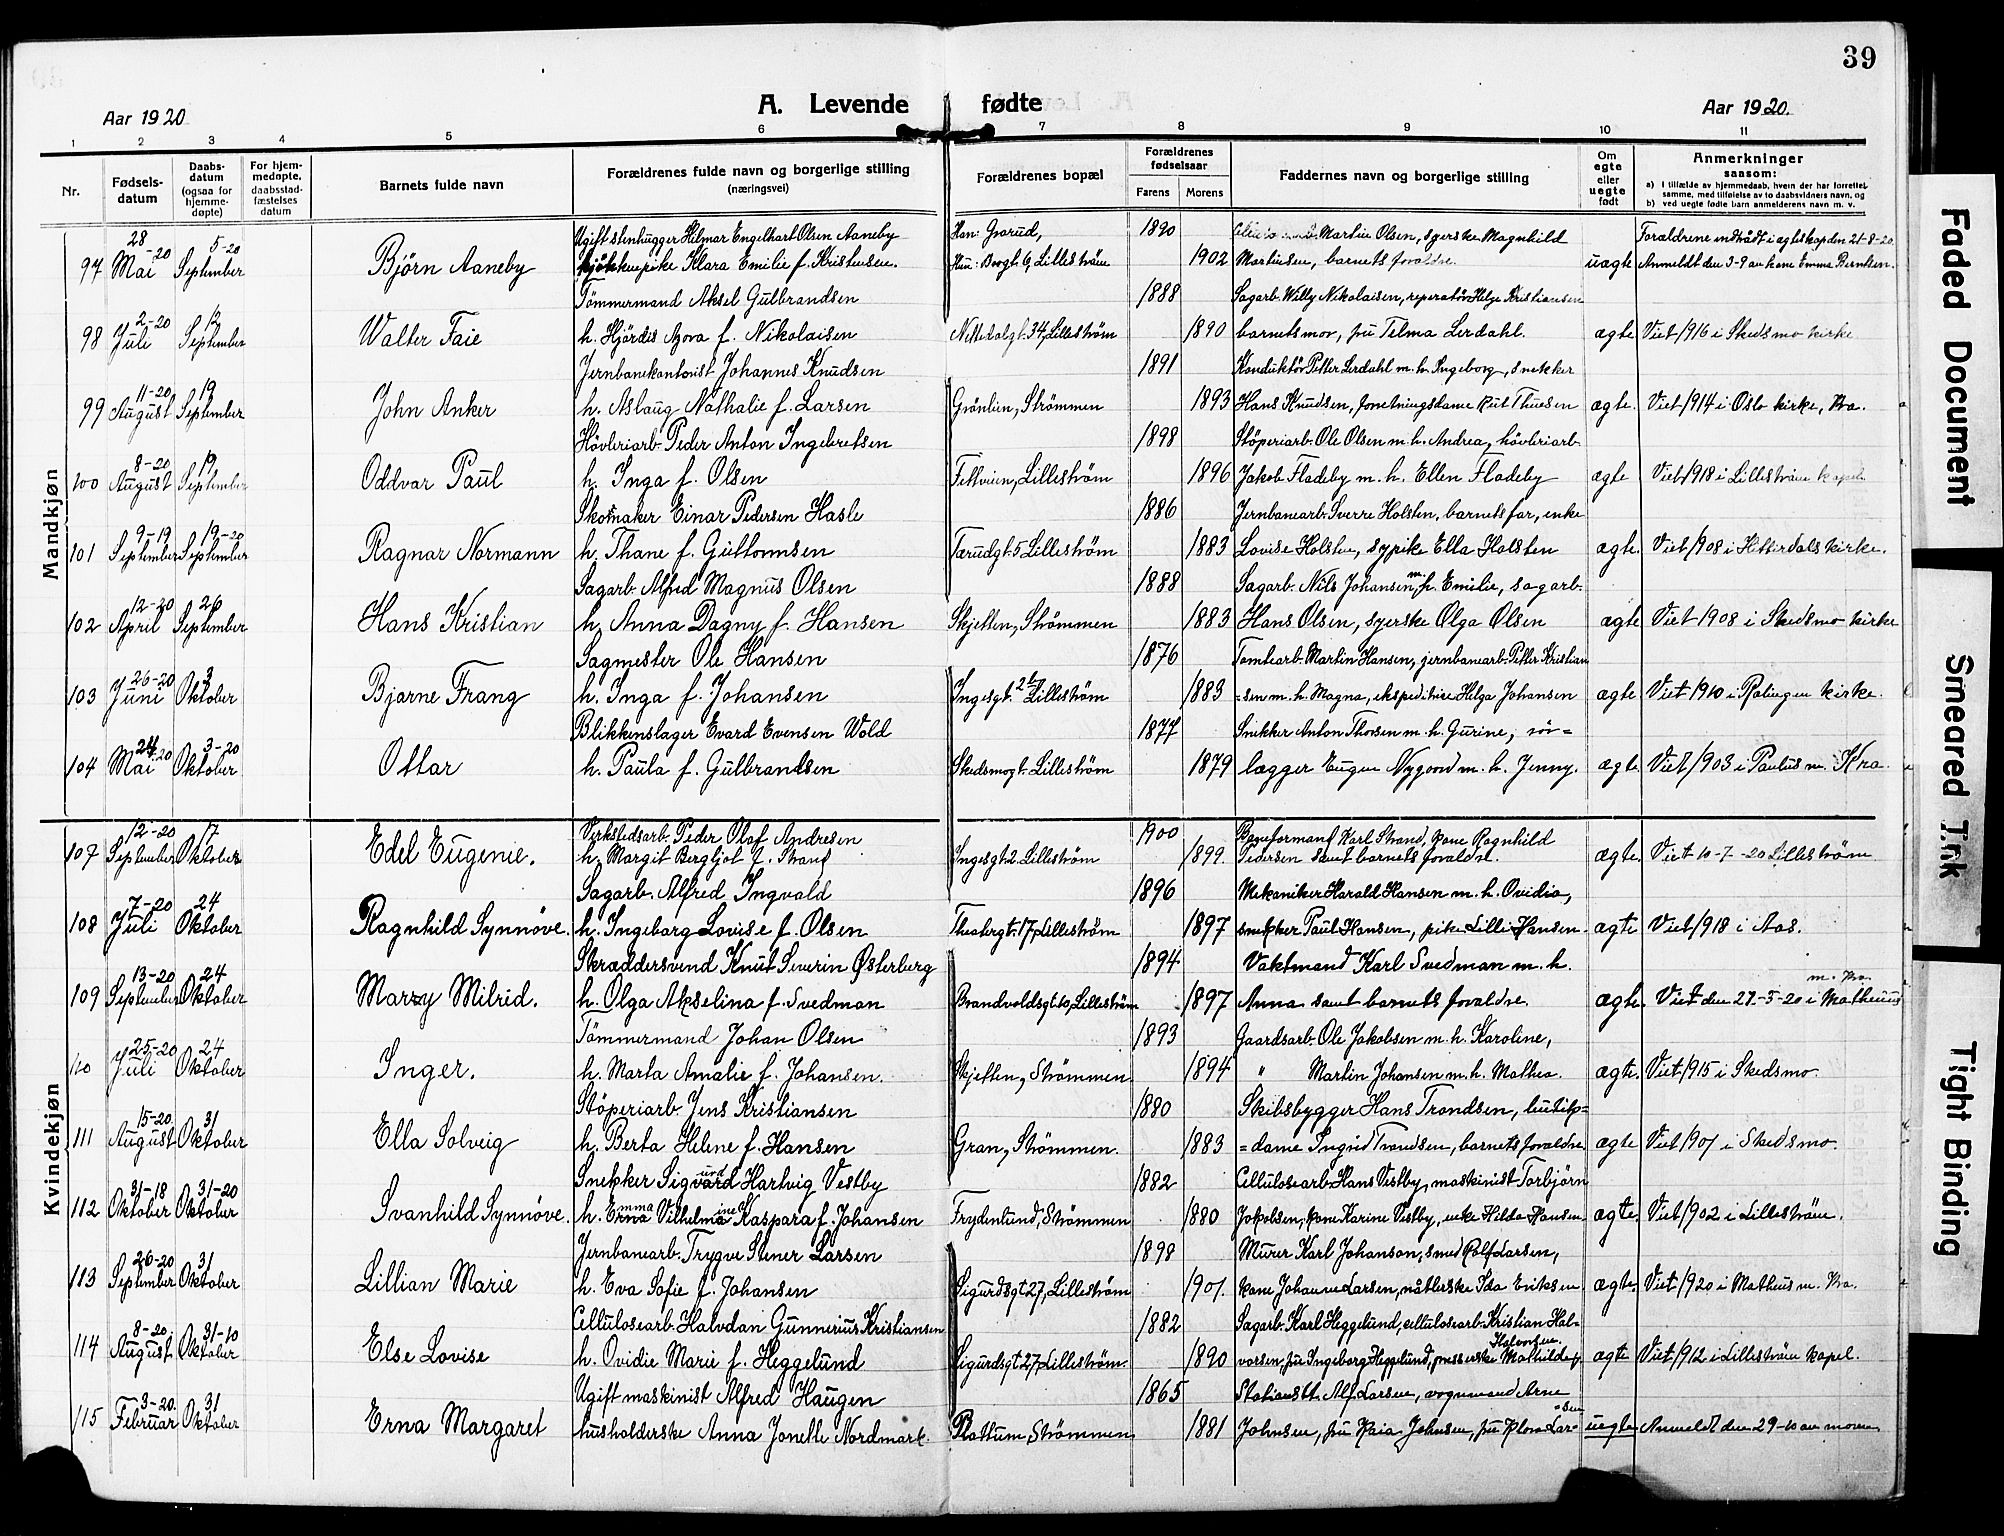 39
A. Levende fødte
Aar 1920
Aar 1920.
1 2 3 4 5 6 7 8 9 10 11
Nr.
Fødsels-datum
Daabs-datum (ogsaa for hjemme-døpte)
For hjem-medøpte, daabsstad-fæstelses datum
Barnets fulde navn
Forældrenes fulde navn og borgerlige stilling (næringsvei)
Forældrenes bopæl
Forældrenes fødselsaar
Farens Morens
Faddernes navn og borgerlige stilling
Om egte eller uegte født
Anmerkninger saasom:
a) I tilfælde av hjemmedaab, hvem der har forrettet samme, med tilføielse av to daabsvidners navn, og
b) ved uegte fødte barn anmelderens navn m. v.
Mandkjøn
97 28-20 Mai 5-20 September Bjørn Aaneby Ugift stenhugger Hilmar Engelhart Olsen Aaneby kjøkkenpike Klara Emilie f. Kristensen. Han: Grorud, Hun: Borgt. 6, Lillestrøm 1890 1902 Martin Olsen, syerske Magnhild Martinsen, barnets forældre. uægte Forældrene indtrådt i ægteskap den 21-8-20. Anmeldt den 3-9 av kone Emma Berntsen.
98 2-20 Juli 12 September Walter Faie Tømmermand Aksel Gulbrandsen h. Hjørdis Azora f. Nikolaisen Nittedalgt. 34, Lillestrøm 1888 1890 Sagarb. Willy Nikolaisen, reperatør Helge Kristiansen barnets mor, fru Telma Lerdahl. ægte Viet 1916 i Skedsmo kirke
99 11-20 August 19 September John Anker Jernbanekontorist Johannes Knudsen h. Aslaug Nathalie f. Larsen Grønlien, Strømmen 1891 1893 Konduktør Petter Lerdahl m. h. Ingeborg, snekker Hans Knudsen, forretningsdame Rut Thuesen ægte. Viet 1914 i Oslo kirke, Kra.
100 8-20 August 19 September Oddvar Paul Høvleriarb. Peder Anton Ingebretsen h. Inga f. Olsen Fettveien, Lillestrøm 1898 1896 Støperiarb. Ole Olsen m. h. Andrea, høvleriarb. Jakob Fladeby m. h. Ellen Fladeby ægte Viet 1918 i Lillestrøm kapel
101 9-19 September 19-20 September Ragnar Normann Skomaker Einar Pedersen Hasle h. Thane f. Guttormsen Tærudgt. 5 Lillestrøm 1886 1883 Jernbanearb. Sverre Holsten, barnets far, enke Lovise Holsten, sypike Ella Holsten ægte. Viet 1908 i Hitterdals kirke.
102 12-20 April 26 September Hans Kristian Sagarb. Alfred Magnus Olsen h. Anna Dagny f. Hansen Skjetten, Strømmen 1888 1883 Sagarb. Nils Johansen m. h. Emilie, sagarb. Hans Olsen, syerske Olga Olsen ægte Viet 1908 i Skedsmo kirke
103 26-20 Juni 3 Oktober Bjarne Frang Sagmester Ole Hansen h. Inga f. Johansen Ingesgt. 2 b Lillestrøm 1876 1883 Tomtearb. Martin Hansen, jernbanearb. Petter Kristian =sen m. h. Magna, ekspeditrice Helga Johansen ægte Viet 1910 i Rælingen kirke.
104 24-20 Mai 3-20 Oktober Ottar Blikkenslager Evard Evensen Wold h. Paula f. Gulbrandsen Skedsmogt. Lillestrøm 1877 1879 Snekker Anton Thorsen m. h. Gurine, rør= lægger Eugen Nygaard m. h. Jenny. ægte Viet 1903 i Paulus m. Kra.
Kvindekjøn
107 12-20 September 17 Oktober Edel Eugenie. Verkstedsarb. Peder Olaf Andresen h. Margit Bergljot f. Strand Ingesgt 2 Lillestrøm 1900 1899. Baneformand Karl Strand, kone Ragnhild Pedersen samt barnets forældre. ægte. Viet 10-7-20 Lillestrøm
108 7-20 Juli 24 Oktober Ragnhild Synnøve. Sagarb. Alfred Ingvald h. Ingeborg Lovise f. Olsen Theatergt. 17, Lillestrøm 1896 1897 Mekaniker Harald Hansen m. h. Ovidia, snekker Paul Hansen, pike Lilli Hansen. ægte Viet 1918 i Aas.
109 13-20 September 24 Oktober Marry Milrid. Skræddersvend Knut Severin Østerberg h. Olga Akselina f. Svedman Brandvoldsgt. 10, Lillestrøm 1894 1897 Vaktmand Karl Svedman m. h. Anna samt barnets forældre. ægte. Viet den 27.-5-20 i Matheus m. Kra.
110 25-20 Juli 24 Oktober Inger. Tømmermand Johan Olsen h. Marta Amalie f. Johansen. Skjetten, Strømmen 1893 1894 Gaardsarb. Ole Jakobsen m. h. Karoline, " Martin Johansen m. h. Mathea. ægte. Viet 1915 i Skedsmo.
111 15-20. August 31 Oktober Ella Solveig Støperiarb. Jens Kristiansen h. Berta Helene f. Hansen Gran, Strømmen. 1880 1883 Skibsbygger Hans Trondsen, butik= =dame Ingrid Trondsen, barnets forældre ægte Viet 1907 i Skedsmo.
112 31-18 Oktober 31-20 Oktober Svanhild Synnøve. Snekker Sigvard urd Hartvig Vestby h. Erna mma Vilhelma ine Kaspara f. Johansen Frydenlund, Strømmen 1882 1880 Cellulosearb. Hans Vestby, maskinist Torbjørn Jakobsen, kone Karine Vestby, enke Hilda Hansen ægte. Viet 1902 i Lillestrøm.
113 26-20 September 31 Oktober Lillian Marie Jernbanearb. Trygve Stener Larsen h. Eva Sofie f. Johansen Sigurdsgt. 27, Lillestrøm 1898 1901. Murer Karl Johanson, smed Rolf Larsen, kone Johanne Larsen, nåtlerske Ida Eriksen ægte. Viet 1920 i Matheus m. Kra.
114 8-20. August 31-10 Oktober Else Lovise Cellulosearb. Halvdan Gunnerius Kristiansen h. Ovidie Marie f. Heggelund Sigurdsgt. 27, Lillestrøm. 1882 1890 Sagarb. Karl Heggelund, cellulosearb. Kristian Hal- vorsen, fru Ingeborg Heggelund, presserske Mathilde Halvorsen. ægte Viet 1912 i Lillestrøm kapel.
115 3-20. Februar 31 Oktober Erna Margaret Ugift maskinist Alfred Haugen husholderske Anna Jonette Nordmark. Platum, Strømmen 1865 1881 Stationsbt. Alf Larsen, vognmand Arne Johnsen, fru Kaia Johnsen, fru Klara Lar- =sen uægte Anmeldt den 29-10 av moren
Faded Document
Smeared Ink
Tight Binding